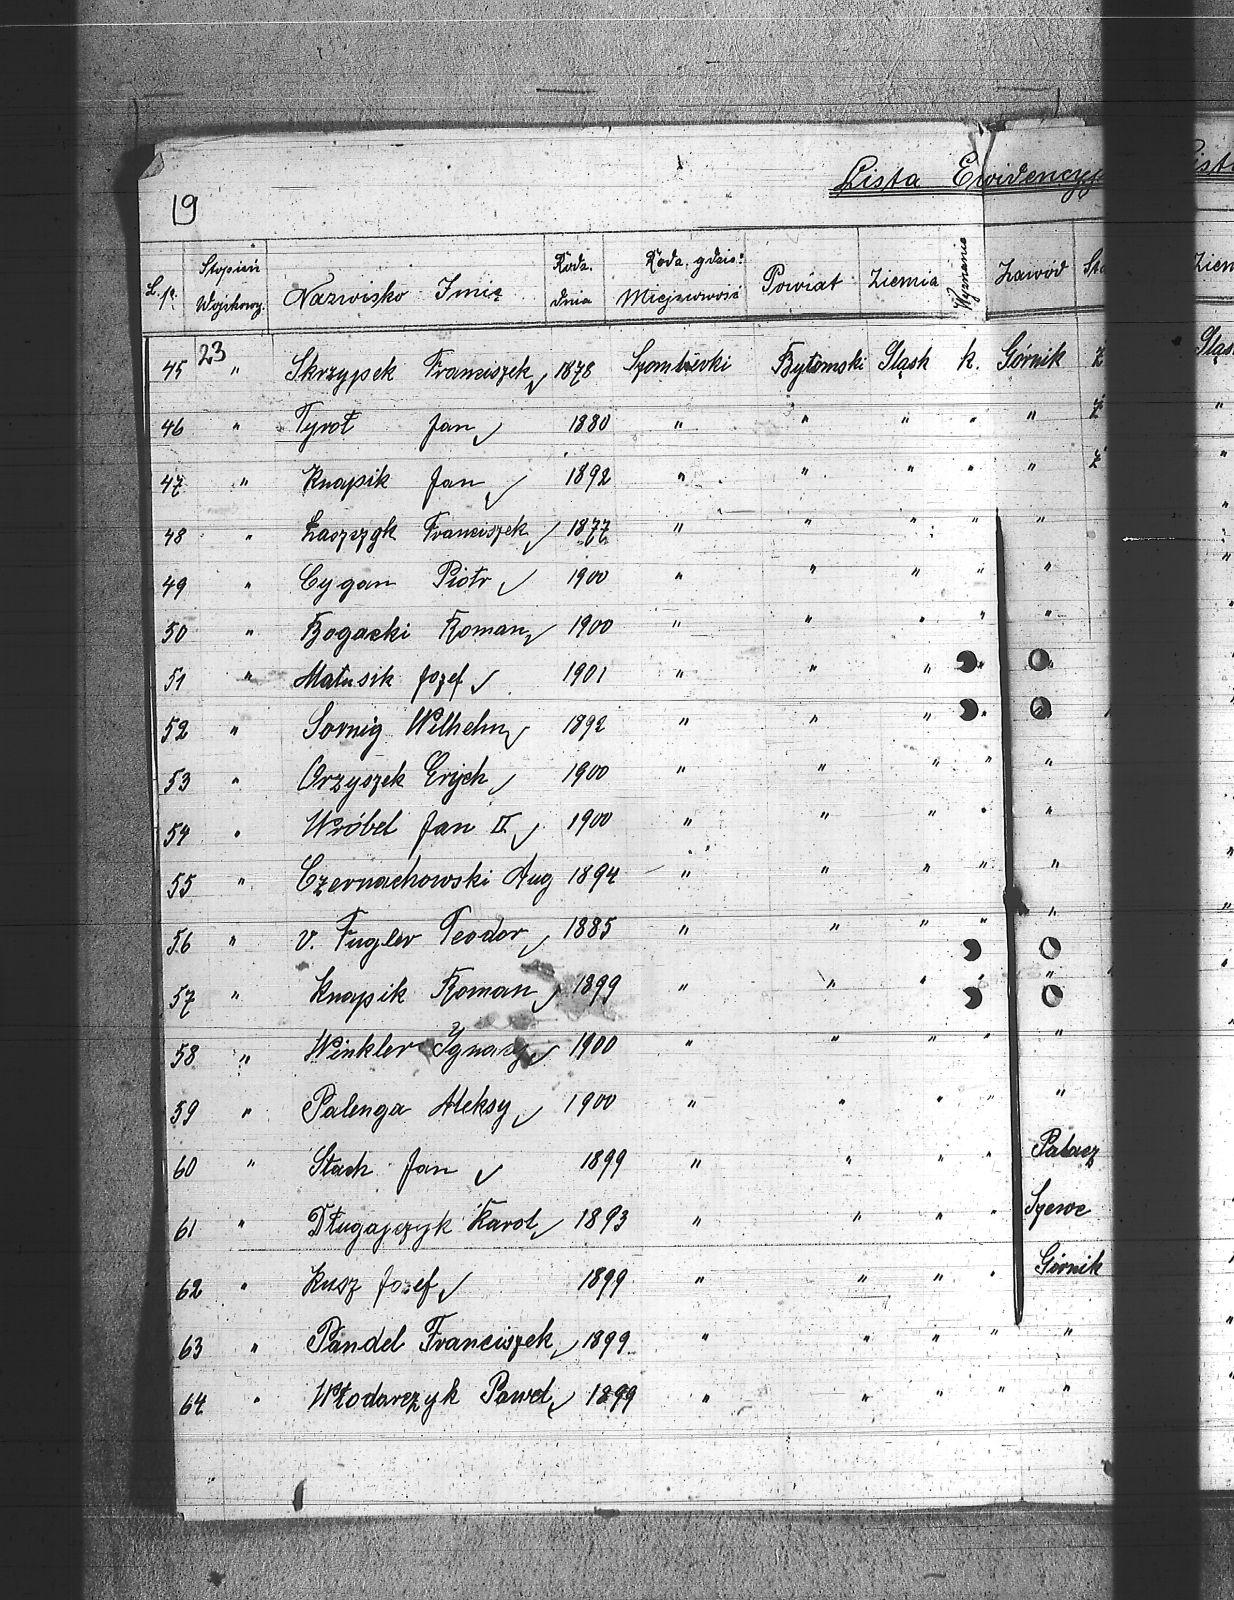 19
Lista Ewidencyj
L.p. Stopień Wojskowy Nazwisko Imię Rodz. dnia Rodz. gdzie: Miejscowość Powiat Ziemia Wyznanie Zawód Sta
45 23 " Skrzypek Franciszek 1878 Szombierki Bytomski Śląsk k. Górnik ż
46 " Tyroł Jan 1880 " " " " " ż
47 " Knapik Jan 1892 " " " " " ż
48 " Łaszczyk Franciszek 1877 " " " " "
49 " Cygan Piotr 1900 " " " " "
50 " Bogacki Roman 1900 " " " " "
51 " Matusik Jozef 1901 " " " "
52 " Sornig Wilhelm 1892 " " " "
53 " Orzyszek Erych 1900 " " " " "
54 " Wróbel Jan II 1900 " " " " "
55 " Czernachowski Aug 1894 " " " " "
56 " v. Fugler Teodor 1885 " " " " "
57 " Knapik Roman 1899 " " " " "
58 " Winkler Ignacy 1900 " " " " "
59 " Palenga Aleksy 1900 " " " " "
60 " Stach Jan 1899 " " " " Palacz
61 " Długajczyk Karol 1893 " " " " Szewc
62 " Kusz Jozef 1899 " " " " Górnik
63 " Pandel Franciszek 1899 " " " " "
64 " Włodarczyk Paweł 1899 " " " " "